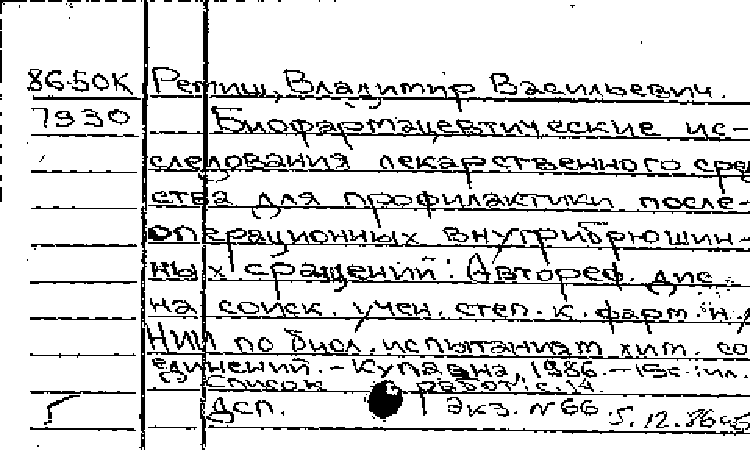 86-50К Ретиш, Владимир Васильевич.
7930 Биофармацевтические ис-
следования лекарственного сред
ства для профилактики после-
операционных внутрибрюшин-
ных сращений: Автореф. дис.
на соиск. учен. степ. к. фарм. н. /
НИИ по биол. испытаниям хим. со
единений. - Купавна, 1986. - 15с. ил.
Список работ: с. 14
ДСП. 1 экз. N 66 5.12.86